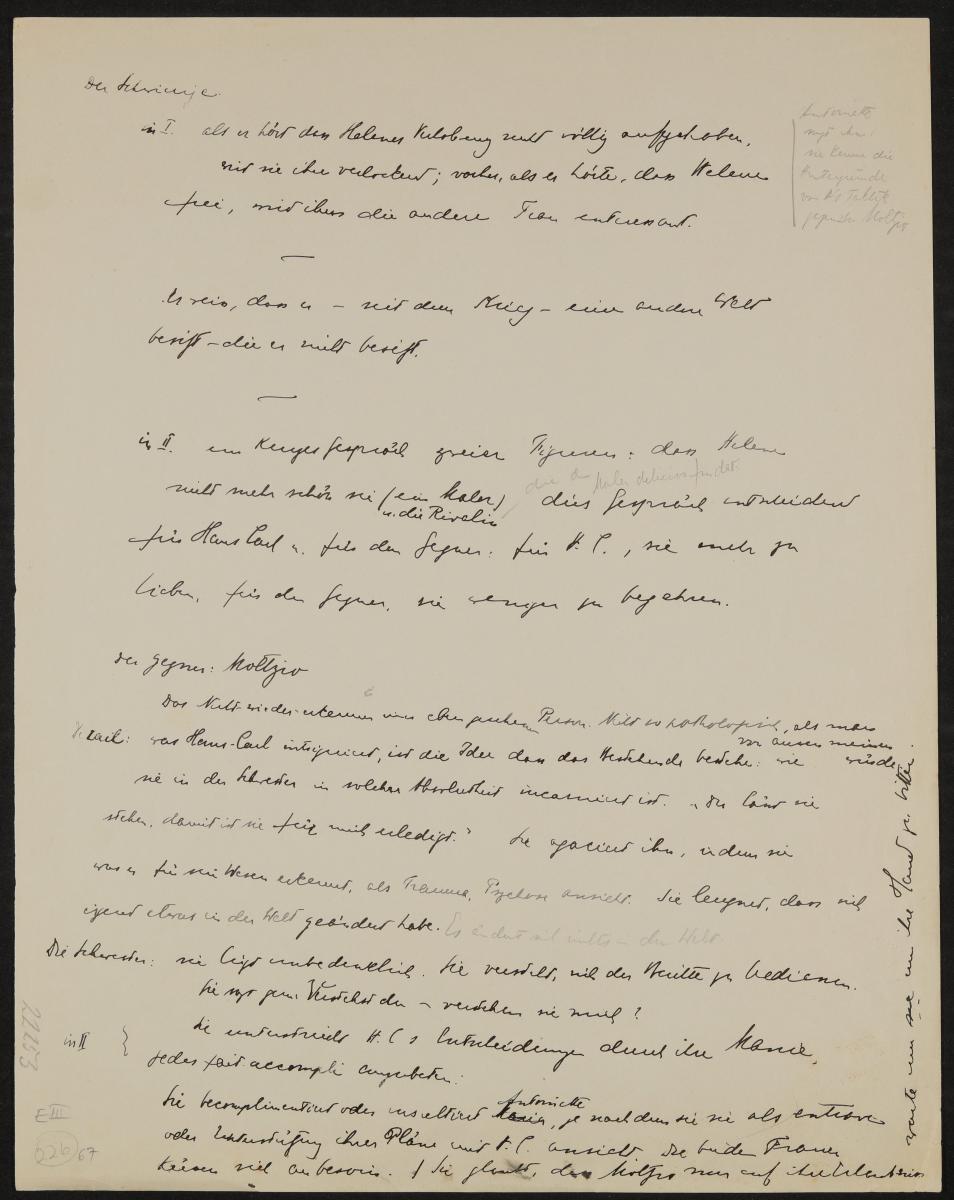 Der Schwierige.
in I. als er hört dass Helenes Verlobung nicht völlig aufgehoben,
wird sie ihm verlockend; vorher, als er hörte, dass Helene
frei, wird ihm die andere Frau interessant.
Antoinette
sagt ihm,
sie kenne die
Hintergründe
von H's Taktik
gegenüber Moltzio
Er weiss, dass er – seit dem Krieg – eine andere Welt
besitzt – die er nicht besitzt.
in II. ein kurzes Gespräch zweier Figuren: dass Helene
nicht mehr schön sei (ein Maler) dies Gespräch entscheidend
u. die Rivalin
die der Maler deliciös findet.
für Hans Carl u. für den Gegner: für H. C., sie mehr zu
lieben, für den Gegner, sie weniger zu begehren.
der Gegner: Moltzio
Das Nicht-wieder-erkennen einer eben gesehenen Person. Nicht so pathologisch, als man
von aussen meinen würde.
was Hans-Carl intriguiert, ist die Idee dass das Bestehende bestehe: wie
sie in der Schwester in solcher Absolutheit incarniert ist. „Der lässt sie
stehen, damit ist sie für mich erledigt." Sie agaciert ihn, indem sie
was er für sein Wesen erkennt, als Trauma, Psychose ansieht. Sie leugnet, dass sich
irgend etwas in der Welt geändert habe. Es ändert sich nichts in der Welt.
Die Schwester: sie lügt unbedenklich. Sie versteht, sich der Brütte zu bedienen.
Sie sagt gern: Verstehst du – verstehen sie mich?
in II Sie unterstreicht H. C s Entscheidungen durch ihre Manie,
jedes fait accompli anzubeten:
Sie becomplimentiert oder insultiert Antoinette, je nachdem sie sie als entrave
oder Unterstützung ihrer Pläne mit H. C. ansieht. Die beiden Frauen
können sich au besoin. Sie glaubt, dass Moltzio nur auf ihre Erlaubniss
warte um sie um ihre Hand zu bitten.
22153
E III
226
67